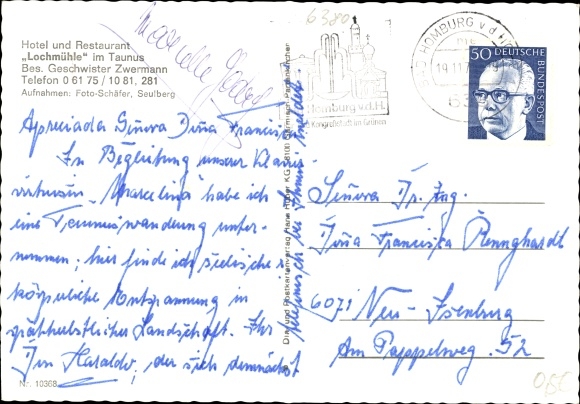 Hotel und Restaurant
„Lochmühle" im Taunus
Bes. Geschwister Zwermann
Telefon 0 61 75 / 10 81, 281
Aufnahmen: Foto-Schäfer, Seulberg
6380
Apreciada Señora Doña Francisca
In Begleitung unserer Klavier-
virtuosin „Marcelina" habe ich
eine Taunuswanderung unter-
nommen; hier finde ich seelische u.
körperliche Entspannung in
spätherbstlicher Landschaft. Ihr
Don Haraldo, der sich demnächst
telefonisch bei Ihnen meldet.
Nr. 10368
Druck und Postkartenverlag Hans Huber KG, 8100 Garmisch-Partenkirchen
HOMBURG v d H
19.11.
Homburg v.d.H.
Kongreßstadt im Grünen
50
DEUTSCHE
BUNDESPOST
Señora Dr. Ing.
Doña Francisca Rennghardt
6071 Neu-Isenburg
Am Pappelweg. 52